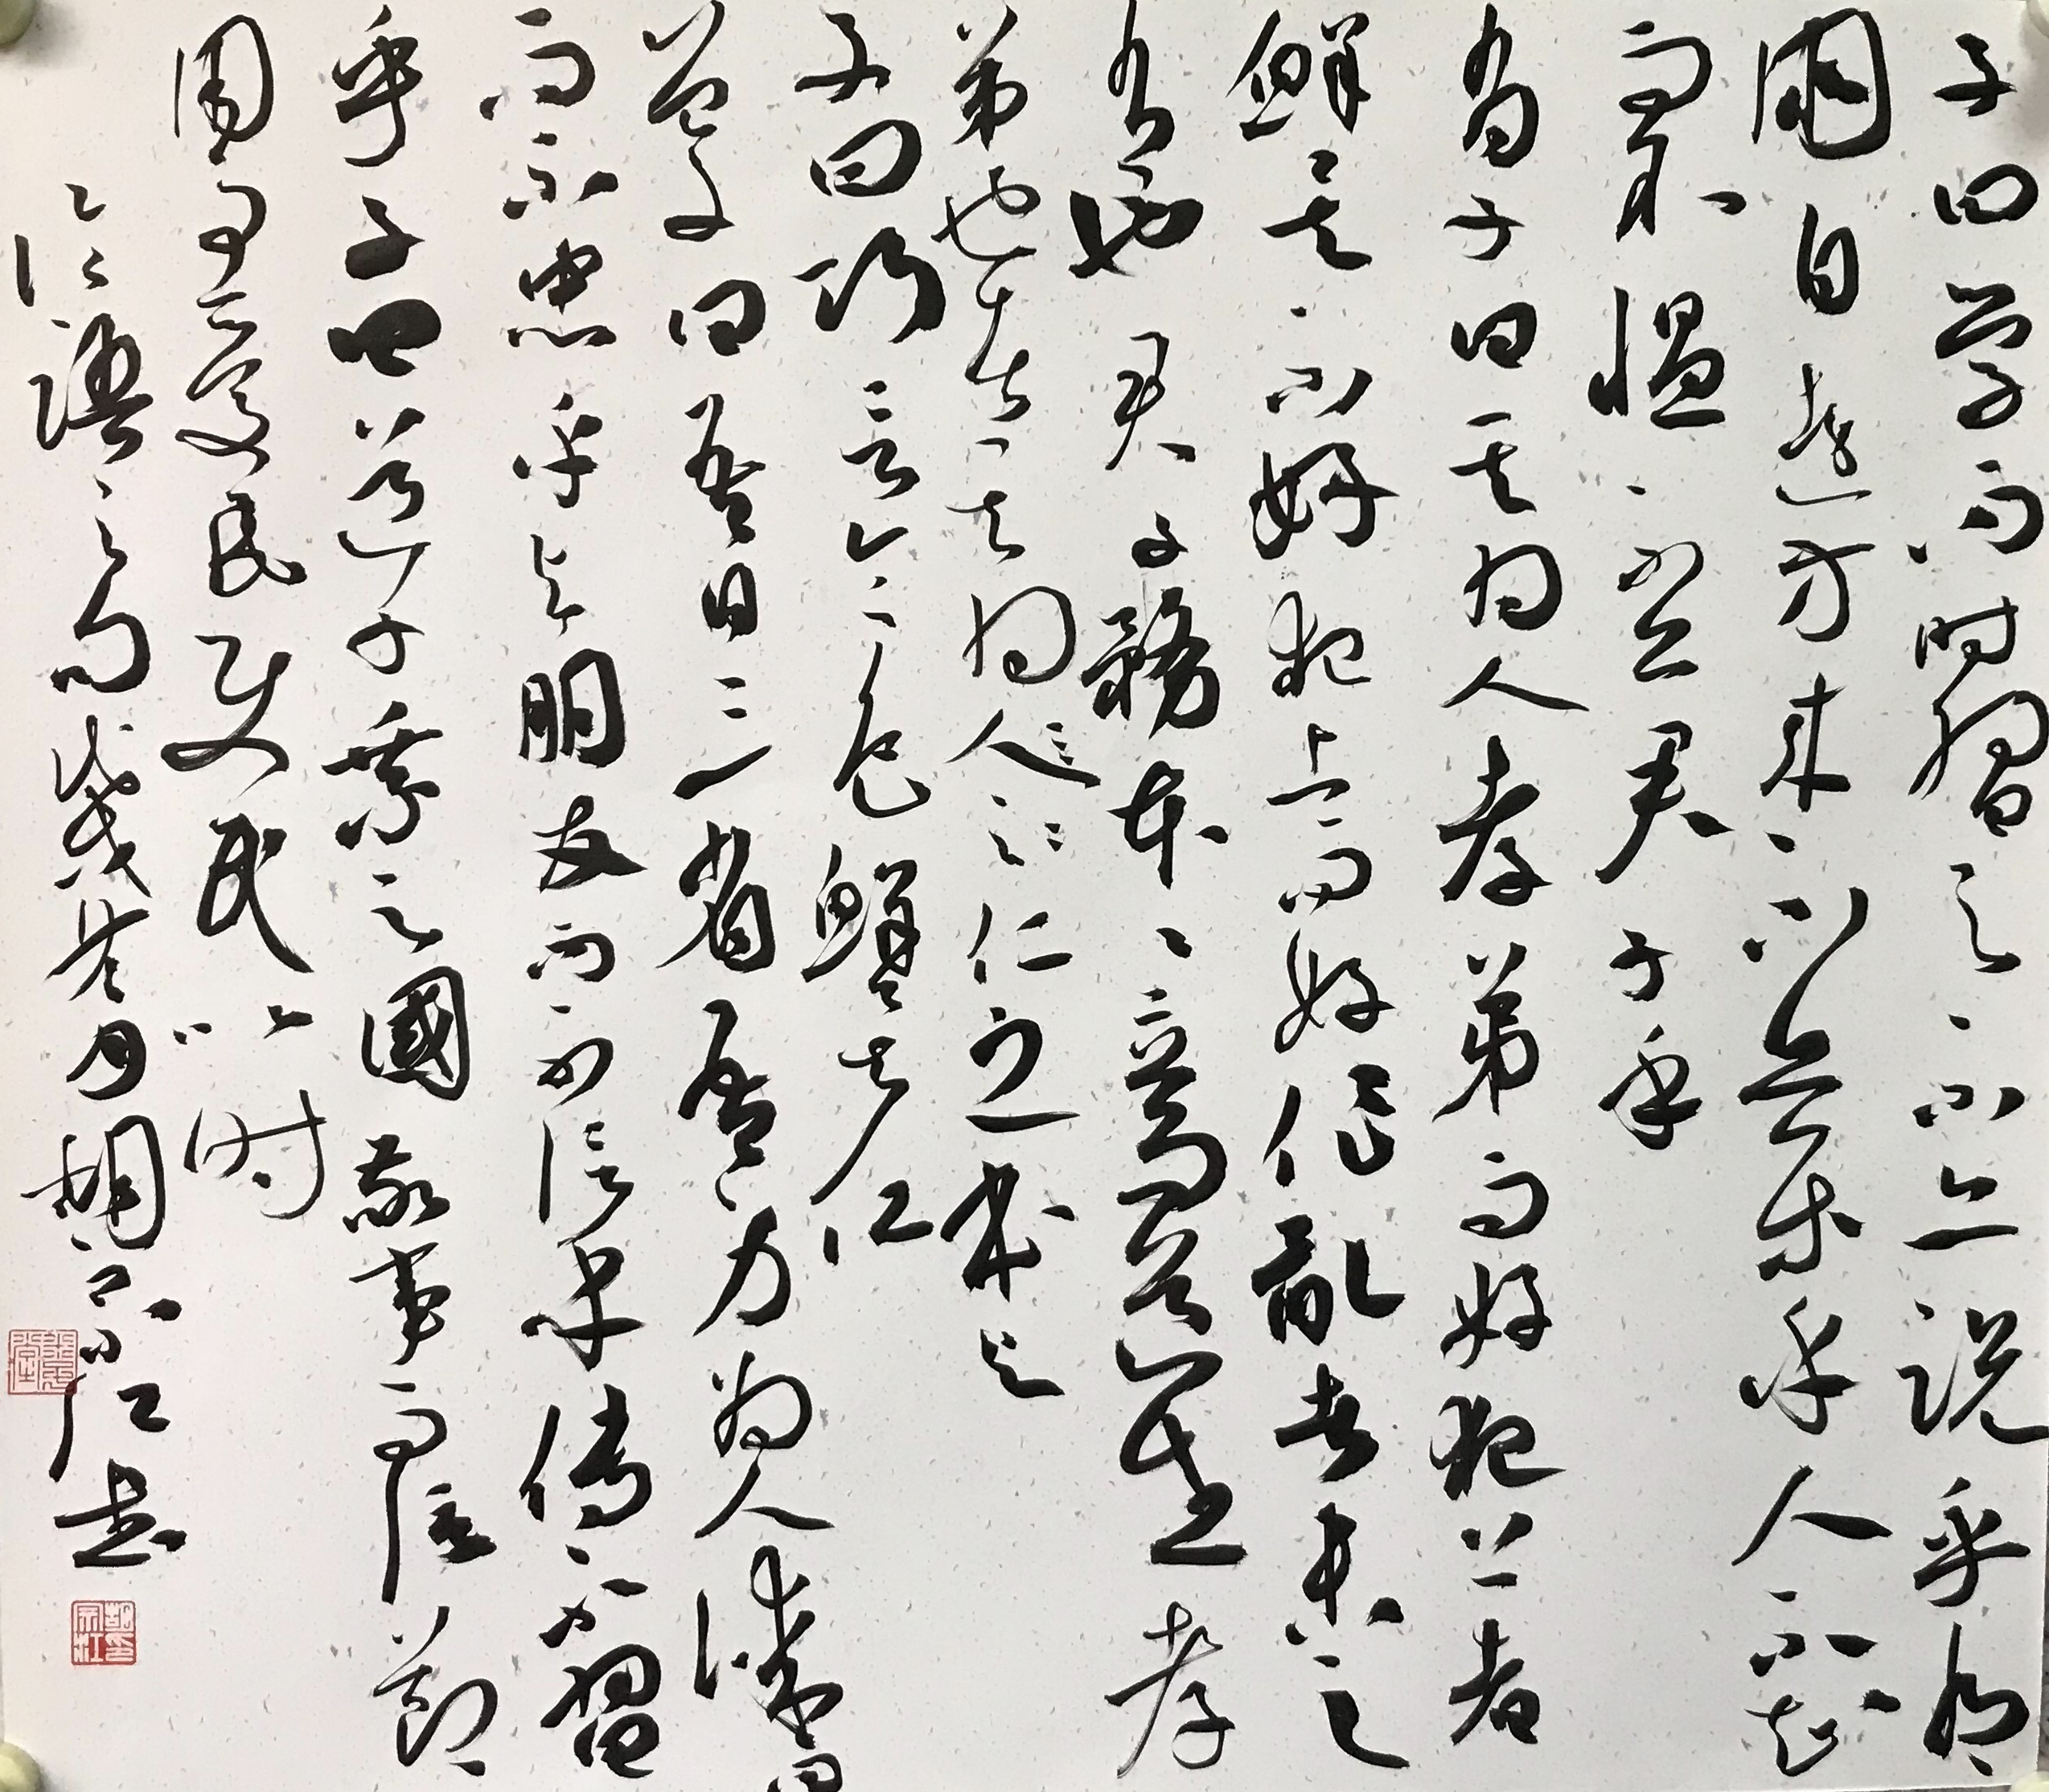 子曰学而时習之不亦说乎有
朋自遠方来不亦乐乎人不知
而不愠不亦君子乎
有子曰其为人孝弟而好犯上者
鲜矣不好犯上而好作亂者未之
有也君子務本本立而道生孝
弟也者其为人之仁之本与
子曰巧言令色鲜矣仁
曾子曰吾日三省吾身为人谋
而不忠乎与朋友而不信乎传不習
乎子曰道千乘之國敬事而信节
用而爱民使民以时
论语之句